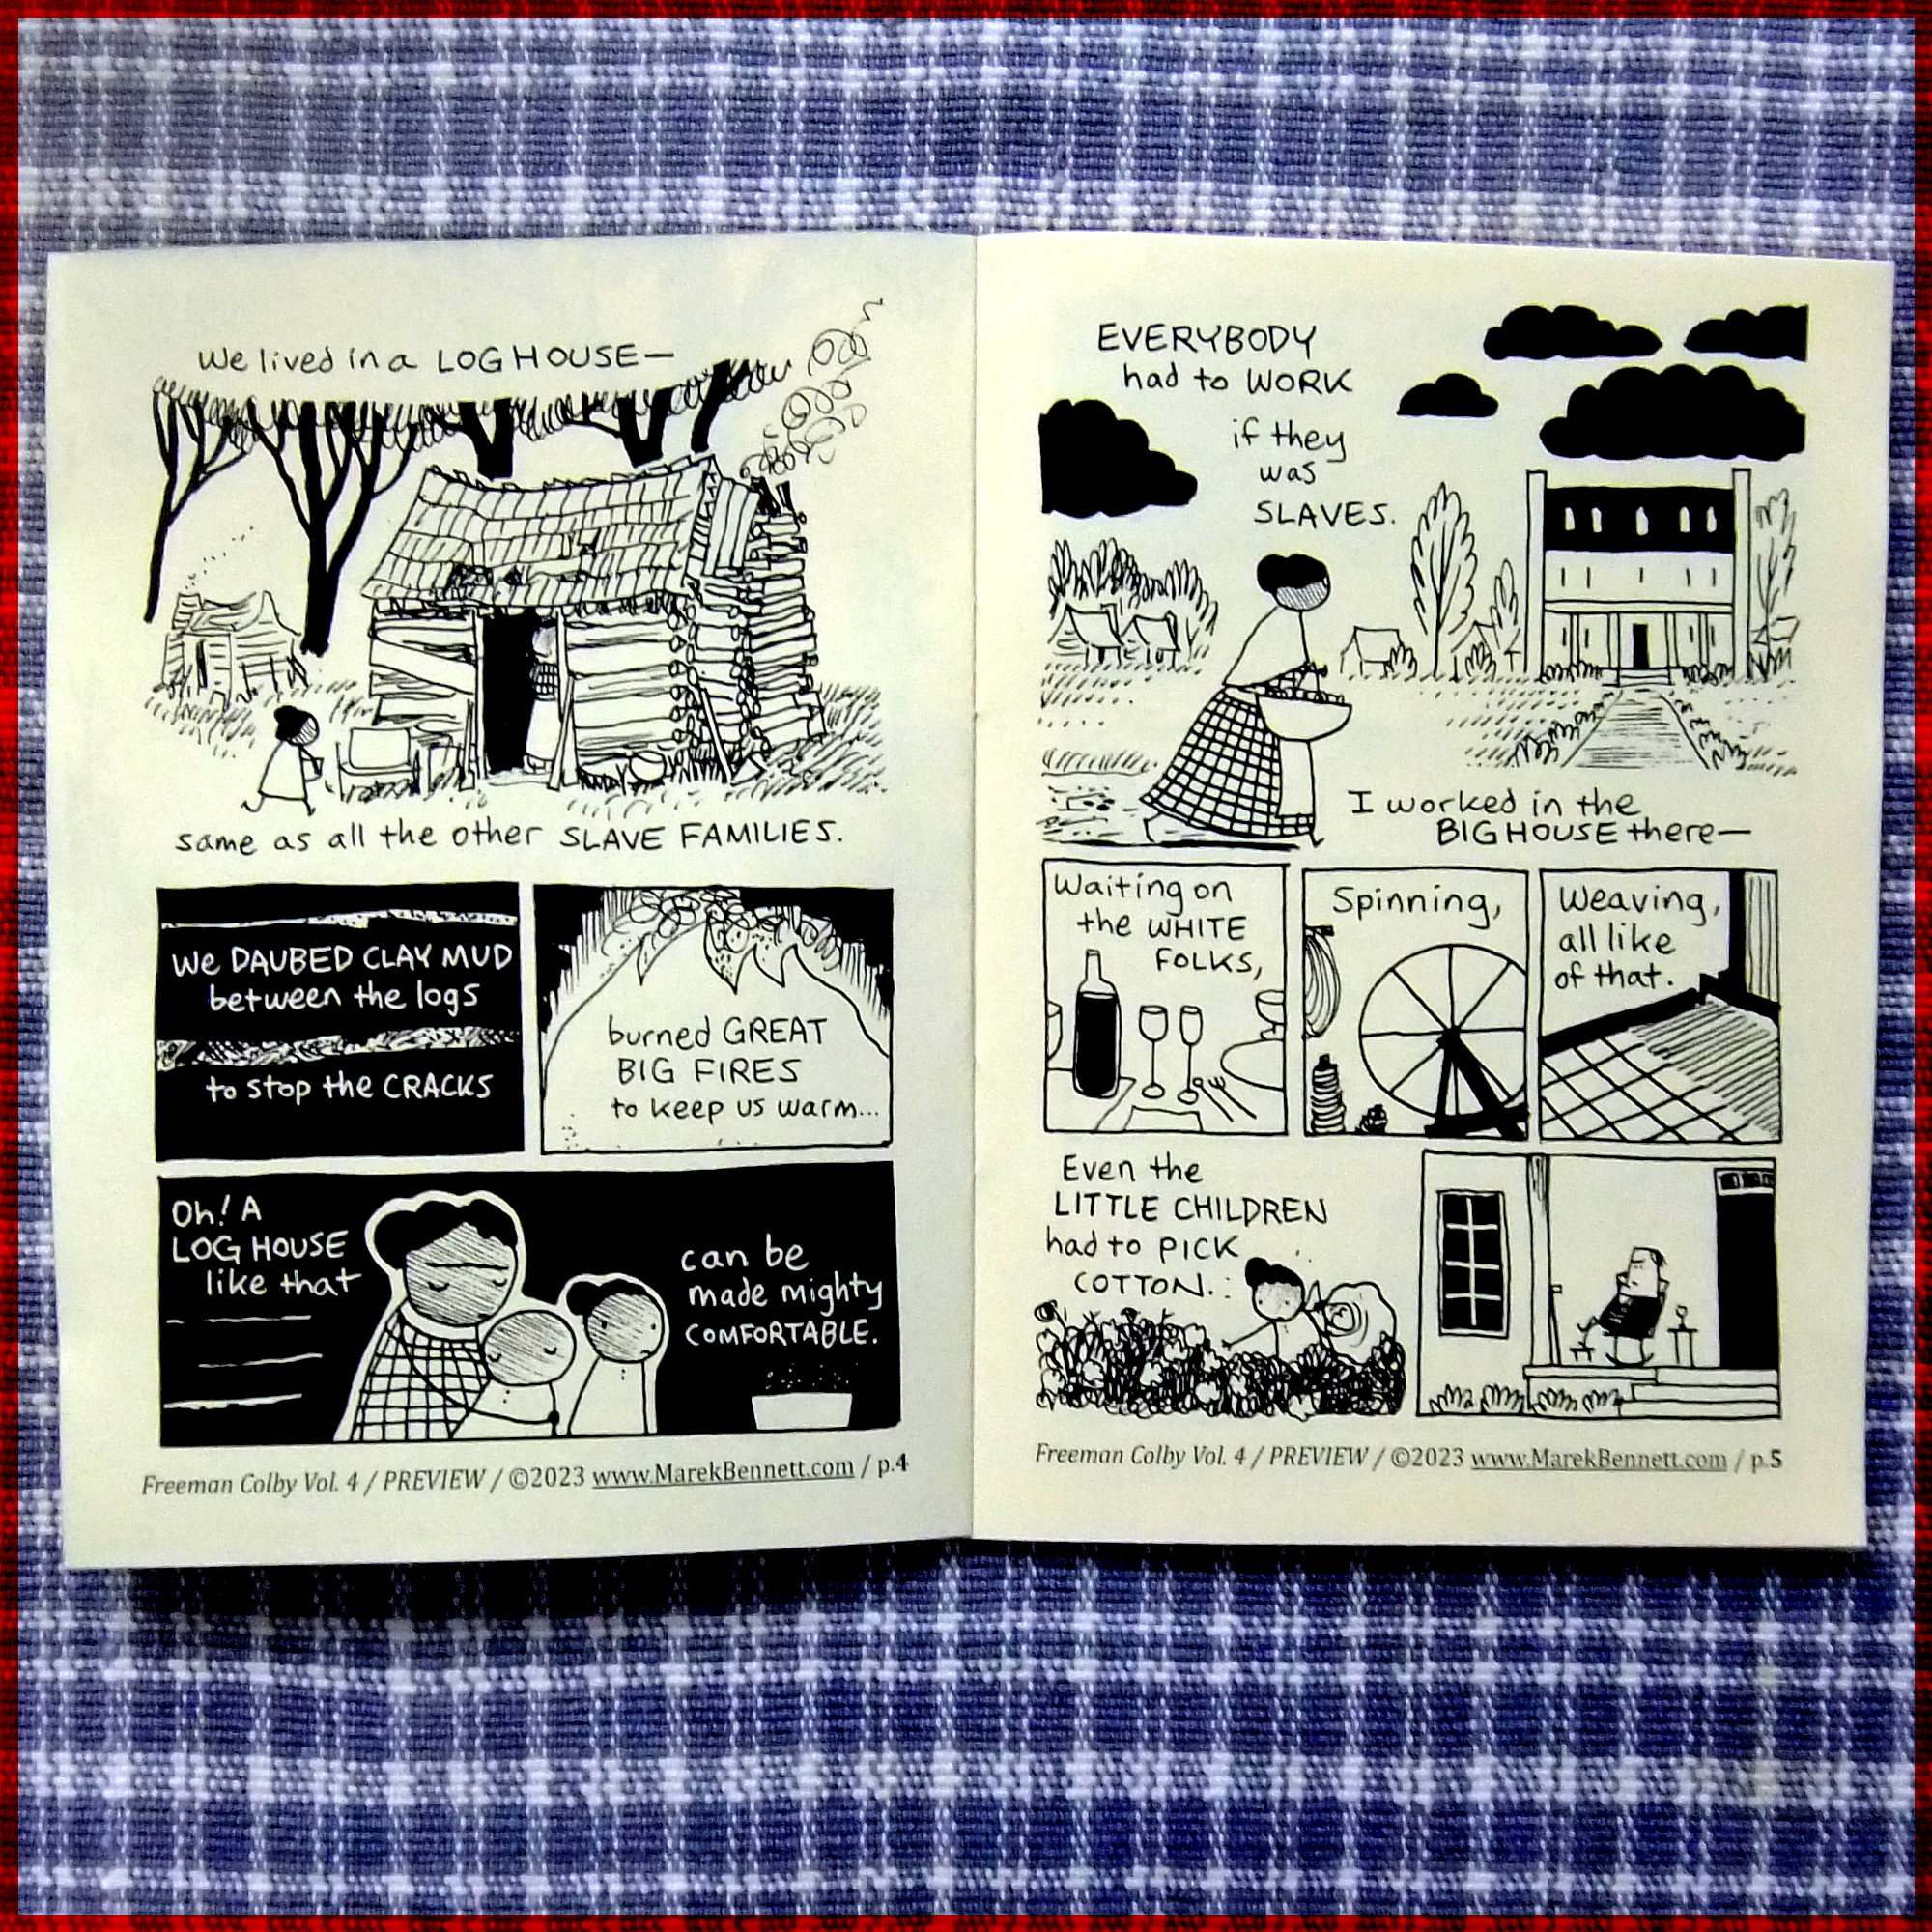 We lived in a LOG HOUSE—
same as all the other SLAVE FAMILIES.
We DAUBED CLAY MUD
between the logs
to stop the CRACKS
burned GREAT
BIG FIRES
to keep us warm...
Oh! A
LOG HOUSE
like that
can be
made mighty
COMFORTABLE.
Freeman Colby Vol. 4 / PREVIEW / ©2023 www.MarekBennett.com / p.4
EVERYBODY
had to WORK
if they
was
SLAVES.
I worked in the
BIG HOUSE there—
Waiting on
the WHITE
FOLKS,
Spinning,
Weaving,
all like
of that.
Even the
LITTLE CHILDREN
had to PICK
COTTON.
Freeman Colby Vol. 4 / PREVIEW / ©2023 www.MarekBennett.com / p.5